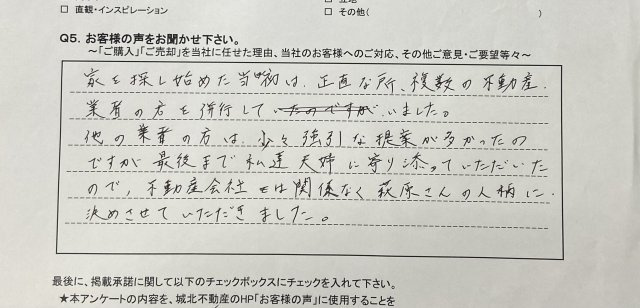 □ 直観・インスピレーション
□ その他( )
Q5．お客様の声をお聞かせ下さい。
～「ご購入」「ご売却」を当社に任せた理由、当社のお客様へのご対応、その他ご意見・ご要望等々～
家を探し始めた当初は、正直な所、複数の不動産
業者の方を併行して いました。
他の業者の方は、少々強引な提案が多かったの
ですが最後まで私達夫婦に寄り添っていただいた
ので、不動産会社 は関係なく萩原さんの人柄に
決めさせていただきました。
最後に、掲載承諾に関して以下のチェックボックスにチェックを入れて下さい。
★本アンケートの内容を、城北不動産のHP「お客様の声」に使用することを